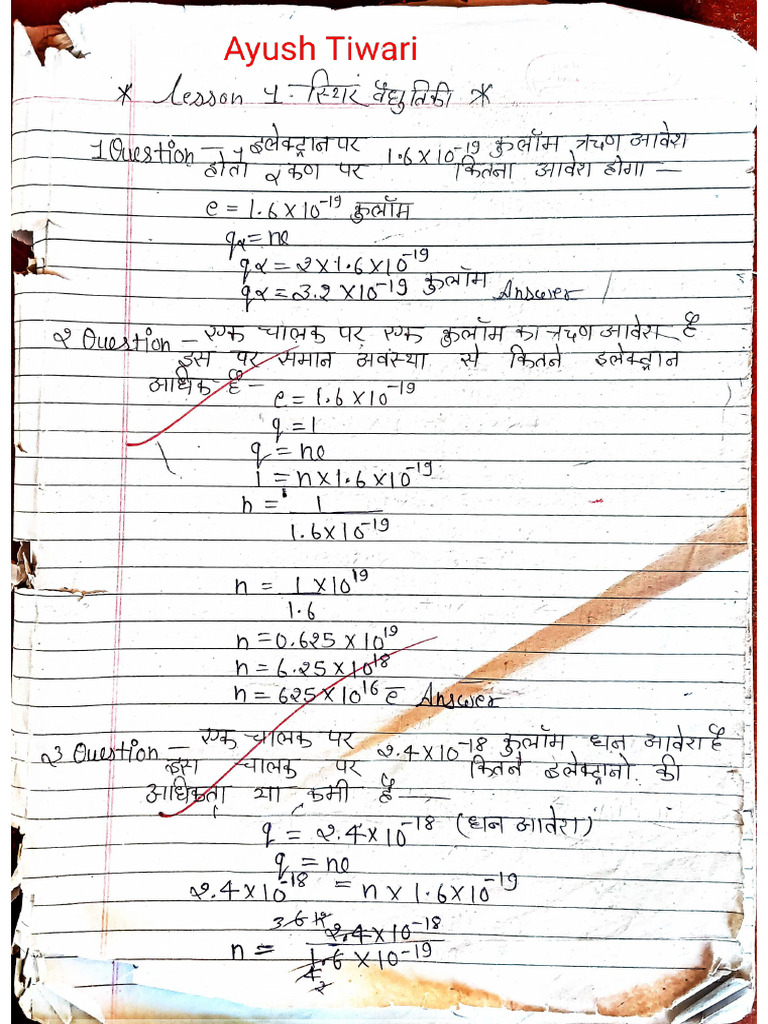 Ayush Tiwari
* Lesson 1:- स्थिर वैद्युतिकी *
1 Question — 1 इलेक्ट्रान पर 1.6×10⁻¹⁹ कुलॉम ऋण आवेश
होता α कण पर कितना आवेश होगा —
e = 1.6×10⁻¹⁹ कुलॉम
qα = ne
qα = 2×1.6×10⁻¹⁹
qα = 3.2×10⁻¹⁹ कुलॉम Answer
2 Question — एक चालक पर एक कुलॉम का ऋण आवेश है
इस पर समान अवस्था से कितने इलेक्ट्रान
अधिक है —
e = 1.6×10⁻¹⁹
q = 1
q = ne
1 = n×1.6×10⁻¹⁹
n = 1
1.6×10⁻¹⁹
n = 1×10¹⁹
1.6
n = 0.625×10¹⁹
n = 6.25×10¹⁸
n = 625×10¹⁶ e̅ Answer
3 Question — एक चालक पर 2.4×10⁻¹⁸ कुलॉम धन आवेश है
इस चालक पर कितने इलेक्ट्रानो की
अधिकता या कमी है —
q = 2.4×10⁻¹⁸ (धन आवेश)
q = ne
2.4×10⁻¹⁸ = n×1.6×10⁻¹⁹
3 6 12
n = 2.4×10⁻¹⁸
1.6×10⁻¹⁹
4 2